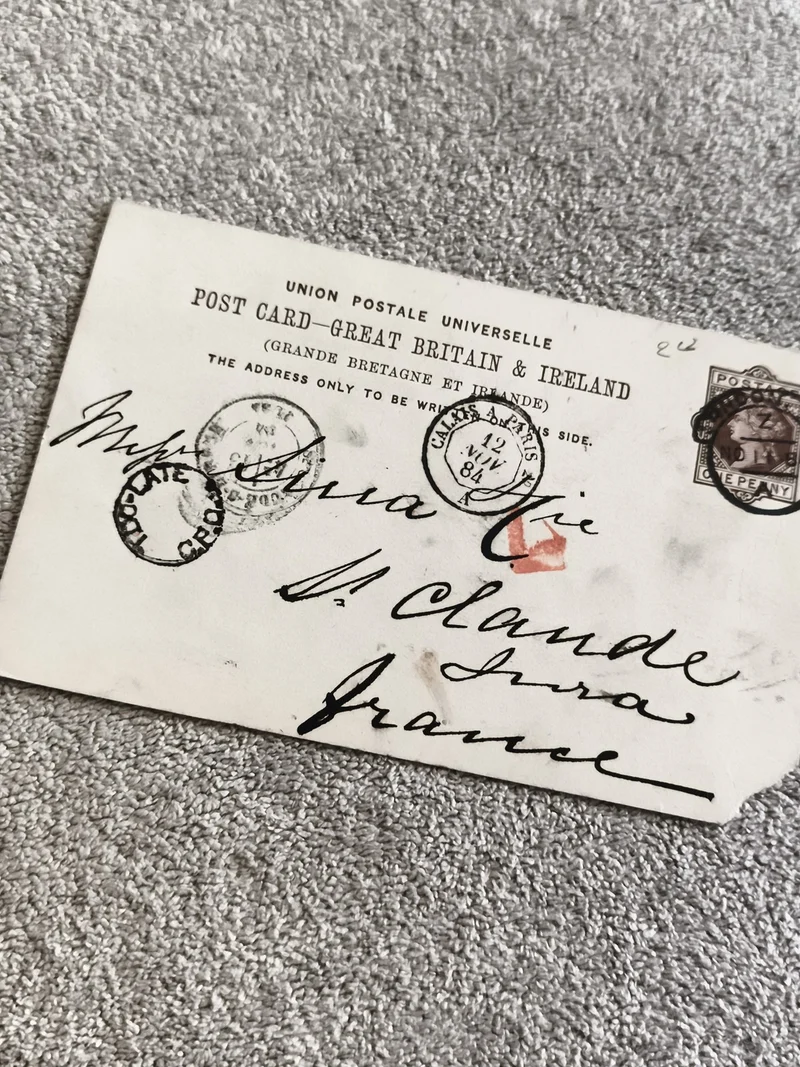 UNION POSTALE UNIVERSELLE
POST CARD—GREAT BRITAIN & IRELAND
(GRANDE BRETAGNE ET IRLANDE)
THE ADDRESS ONLY TO BE WRITTEN ON THIS SIDE.
POSTAGE
ONE PENNY
LONDON
Z
CALAIS A PARIS
12
NOV
84
A
TOO-LATE
G.P.O.
St. Claude
Jura
France